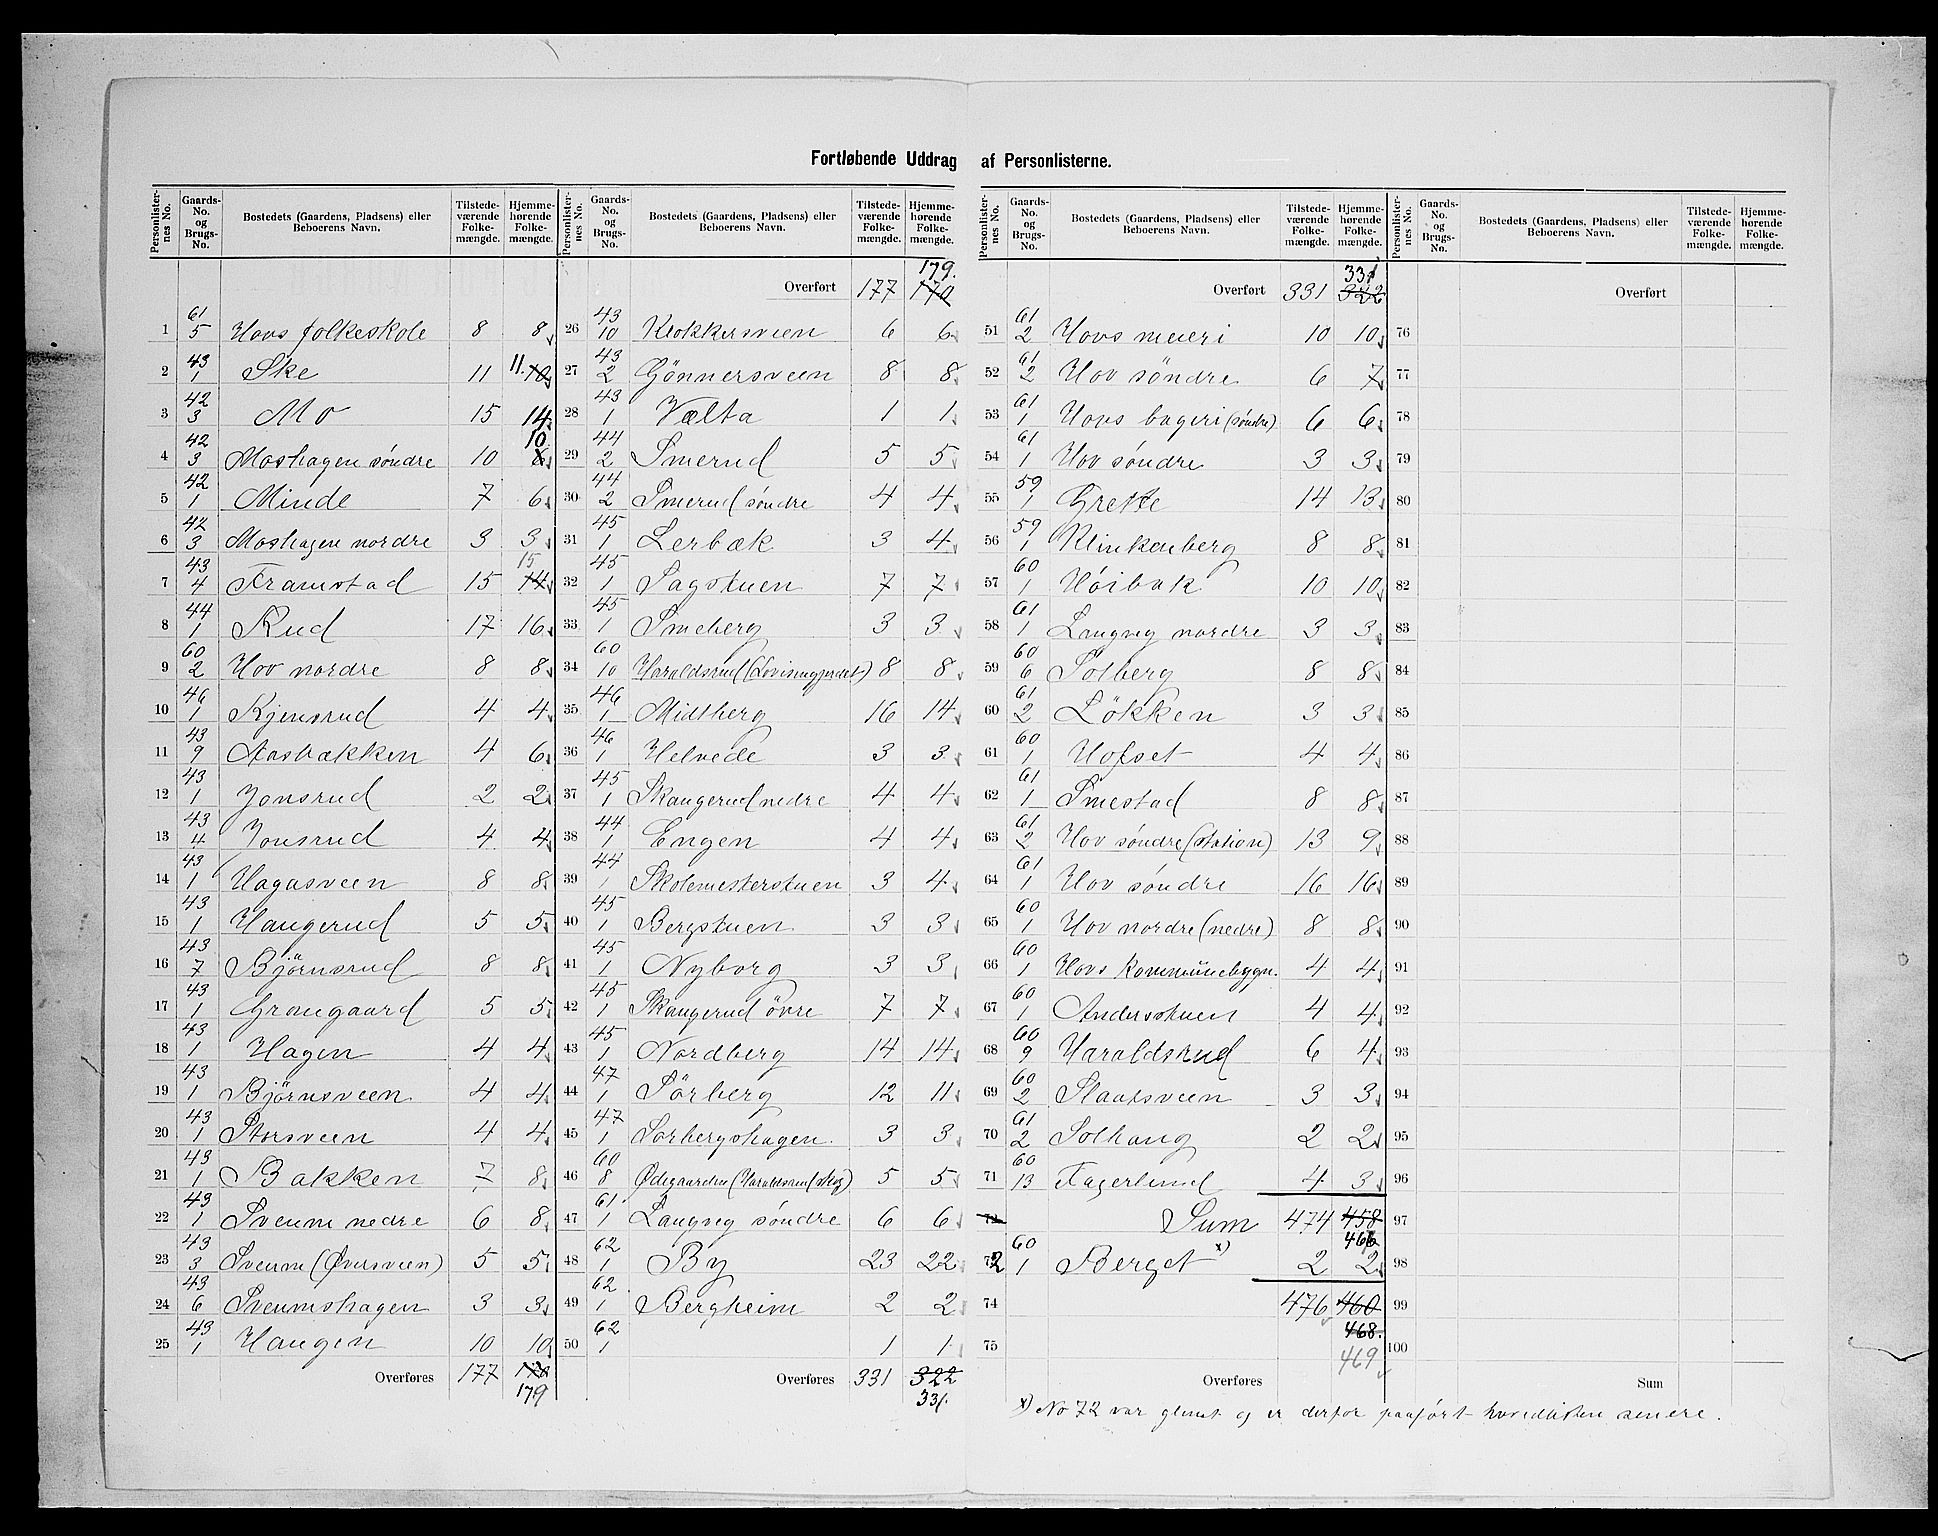 Fortløbende Uddrag af Personlisterne.
Personlister-nes No. | Gaards-No. og Brugs-No. | Bostedets (Gaardens, Pladsens) eller Beboerens Navn. | Tilstede-værende Folke-mængde. | Hjemme-hørende Folke-mængde.
1 | 61/5 | Hovs folkeskole | 8 | 8
2 | 43/1 | Ske | 11 | 11. 10
3 | 42/3 | Mo | 15 | 14
4 | 42/3 | Moshagen søndre | 10 | 10 8
5 | 42/1 | Minde | 7 | 6
6 | 42/3 | Moshagen nordre | 3 | 3
7 | 43/4 | Framstad | 15 | 15 14
8 | 44/1 | Rud | 17 | 16
9 | 60/2 | Hov nordre | 8 | 8
10 | 46/1 | Kjensrud | 4 | 4
11 | 43/9 | Aasbakken | 4 | 6
12 | 43/1 | Jonsrud | 2 | 2
13 | 43/4 | Jonsrud | 4 | 4
14 | 43/1 | Hagasveen | 8 | 8
15 | 43/1 | Haugerud | 5 | 5
16 | 43/7 | Björnsrud | 8 | 8
17 | 43/1 | Grønegaard | 5 | 5
18 | 43/1 | Hagen | 4 | 4
19 | 43/1 | Björnsveen | 4 | 4
20 | 43/1 | Storsveen | 4 | 4
21 | 43/1 | Bakken | 7 | 8
22 | 43/1 | Sveum nedre | 6 | 8
23 | 43/3 | Sveum (Øversveen) | 5 | 5
24 | 43/6 | Sveumshagen | 3 | 3
25 | 43/1 | Haugen | 10 | 10
Overføres | 177 | 170 179
Personlister-nes No. | Gaards-No. og Brugs-No. | Bostedets (Gaardens, Pladsens) eller Beboerens Navn. | Tilstede-værende Folke-mængde. | Hjemme-hørende Folke-mængde.
Overført | 177 | 179. 170
26 | 43/10 | Klokkersveen | 6 | 6
27 | 43/2 | Gönnersveen | 8 | 8
28 | 43/1 | Vælta | 1 | 1
29 | 44/2 | Smerud | 5 | 5
30 | 44/2 | Smerud søndre | 4 | 4
31 | 45/1 | Lerbæk | 3 | 4
32 | 45/1 | Sagstuen | 7 | 7
33 | 45/1 | Smeberg | 3 | 3
34 | 60/10 | Haraldsrud (Lovisengjerdet) | 8 | 8
35 | 46/1 | Midtberg | 16 | 14
36 | 46/1 | Helvede | 3 | 3
37 | 45/1 | Skaugerud nedre | 4 | 4
38 | 44/1 | Engen | 4 | 4
39 | 44/1 | Skolemesterstuen | 3 | 4
40 | 45/1 | Bergstuen | 3 | 3
41 | 45/1 | Nyborg | 3 | 3
42 | 45/1 | Skaugerud övre | 7 | 7
43 | 45/1 | Nordberg | 14 | 14
44 | 47/1 | Sörberg | 12 | 11
45 | 47/1 | Sørbergshagen. | 3 | 3
46 | 60/8 | Ødegaarden (Haraldsrud skog) | 5 | 5
47 | 61/1 | Langveg søndre | 6 | 6
48 | 62/1 | By | 23 | 22
49 | 62/1 | Bergheim | 2 | 2
50 | 62/1 | 1 | 1
Overføres | 331 | 322 331.
Personlister-nes No. | Gaards-No. og Brugs-No. | Bostedets (Gaardens, Pladsens) eller Beboerens Navn. | Tilstede-værende Folke-mængde. | Hjemme-hørende Folke-mængde.
Overført | 331 | 331 322
51 | 61/2 | Hovs meieri | 10 | 10
52 | 61/2 | Hov søndre | 6 | 7
53 | 61/1 | Hovs bageri (søndre) | 6 | 6
54 | 61/1 | Hov søndre | 3 | 3
55 | 59/1 | Grette | 14 | 13
56 | 59/1 | Klinkenberg | 8 | 8
57 | 60/1 | Høibak | 10 | 10
58 | 61/1 | Langveg nordre | 3 | 3
59 | 60/6 | Solberg | 8 | 8
60 | 61/2 | Lökken | 3 | 3
61 | 60/1 | Hofset | 4 | 4
62 | 61/1 | Smestad | 8 | 8
63 | 61/2 | Hov søndre (station) | 13 | 9
64 | 61/1 | Hov søndre | 16 | 16
65 | 60/1 | Hov nordre (nedre) | 8 | 8
66 | 60/1 | Hovs kommunebygn. | 4 | 4
67 | 60/1 | Andersstuen | 4 | 4
68 | 60/9 | Haraldsrud | 6 | 4
69 | 60/2 | Slaatsveen | 3 | 3
70 | 61/2 | Solhaug | 2 | 2
71 | 60/13 | Fagerlund | 4 | 3
72 | Sum | 474 | 458 466
72 | 60/1 | Berget x) | 2 | 2
74 | 476 | 460
75 | 468. 469
Overføres
Personlister-nes No. | Gaards-No. og Brugs-No. | Bostedets (Gaardens, Pladsens) eller Beboerens Navn. | Tilstede-værende Folke-mængde. | Hjemme-hørende Folke-mængde.
Overført
76
77
78
79
80
81
82
83
84
85
86
87
88
89
90
91
92
93
94
95
96
97
98
99
100
Sum
x) No 72 var glemt og er derfor paaført hovedlisten senere.